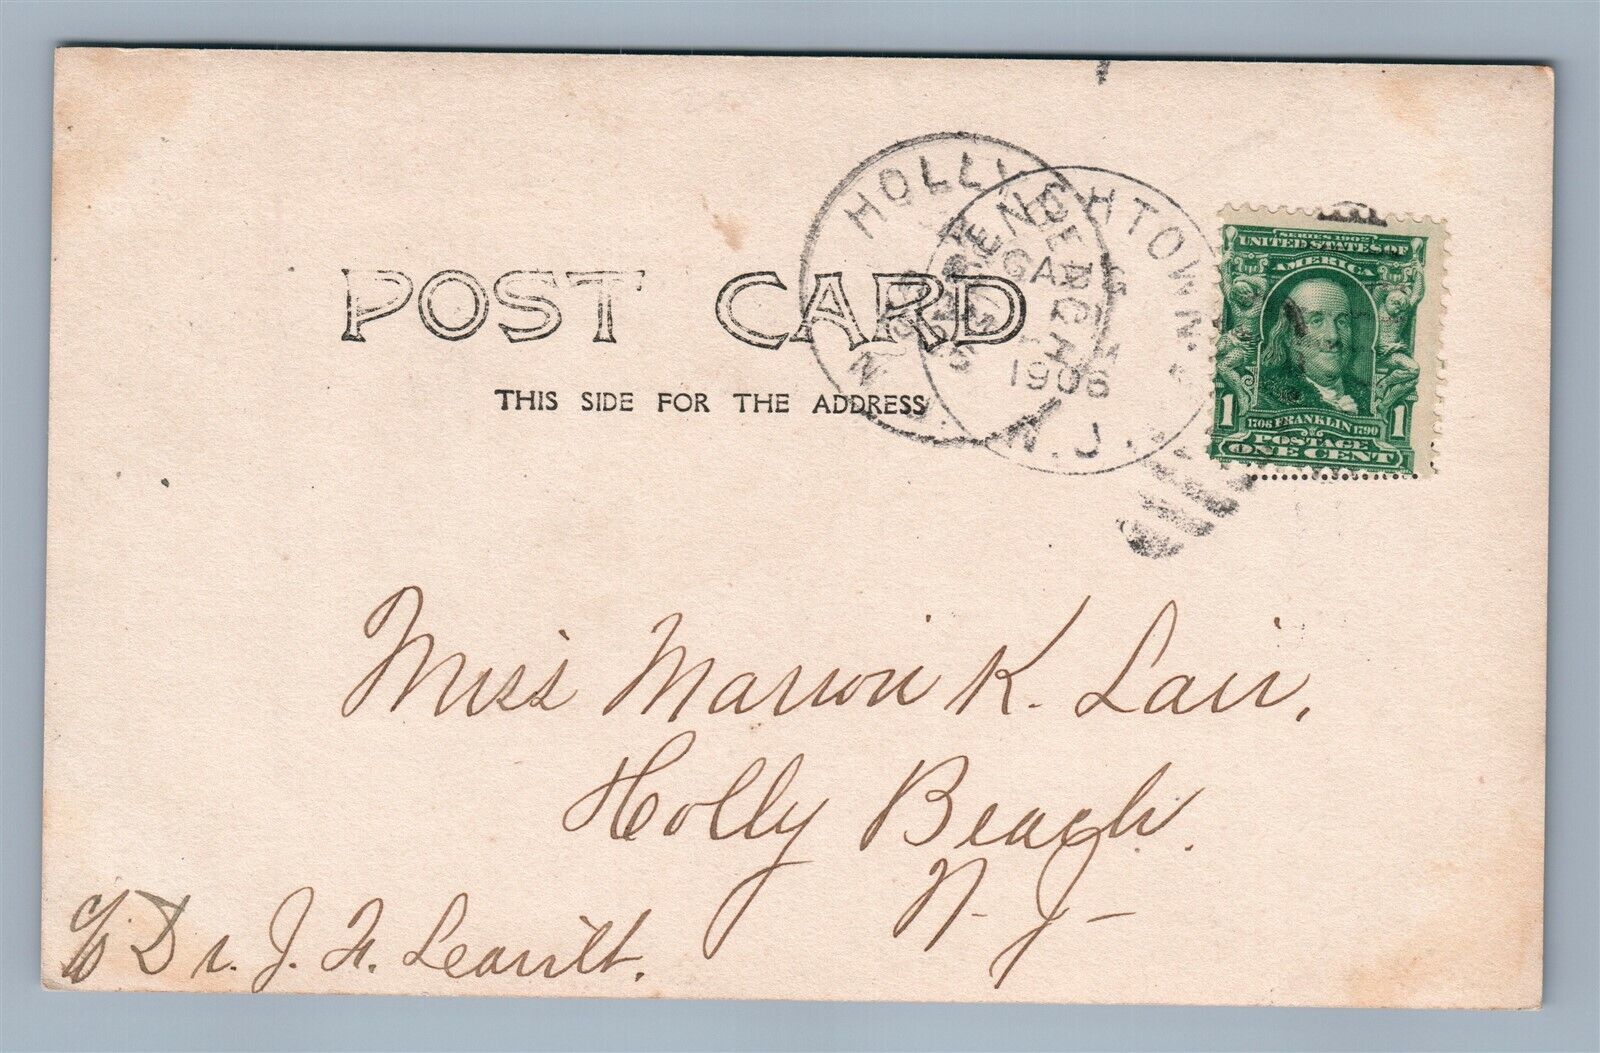 POST CARD
THIS SIDE FOR THE ADDRESS
HOLLY BEACH
N.J.
1906
SERIES 1902
UNITED STATES OF
AMERICA
1 1706 FRANKLIN 1790 1
POSTAGE
ONE CENT
Miss Marion K. Lair,
Holly Beach.
N. J-
c/o Dr. J. H. Leavitt.